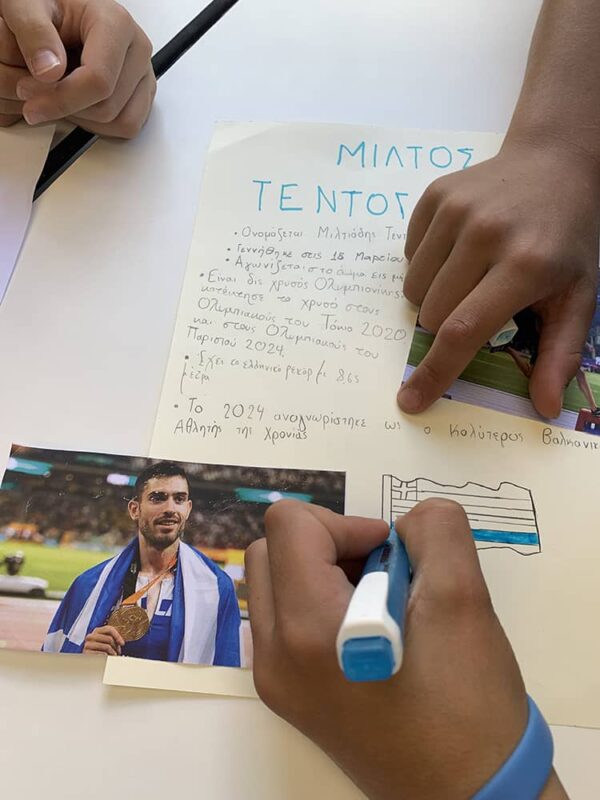 ΜΙΛΤΟΣ
ΤΕΝΤΟΓ
• Ονομάζεται Μιλτιάδης Τεντ
• Γεννήθηκε στις 18 Μαρτίου
• Αγωνίζεται στο άλμα εις μή
• Είναι δις χρυσός Ολυμπιονίκης
κατέκτησε το χρυσό στους
Ολυμπιακούς του Τόκιο 2020
και στους Ολυμπιακούς του
Παρισιού 2024.
• Έχει το ελληνικό ρεκόρ με 8,65
μέτρα
• Το 2024 αναγνωρίστηκε ως ο καλύτερος Βαλκανικ
Αθλητής της Χρονιάς